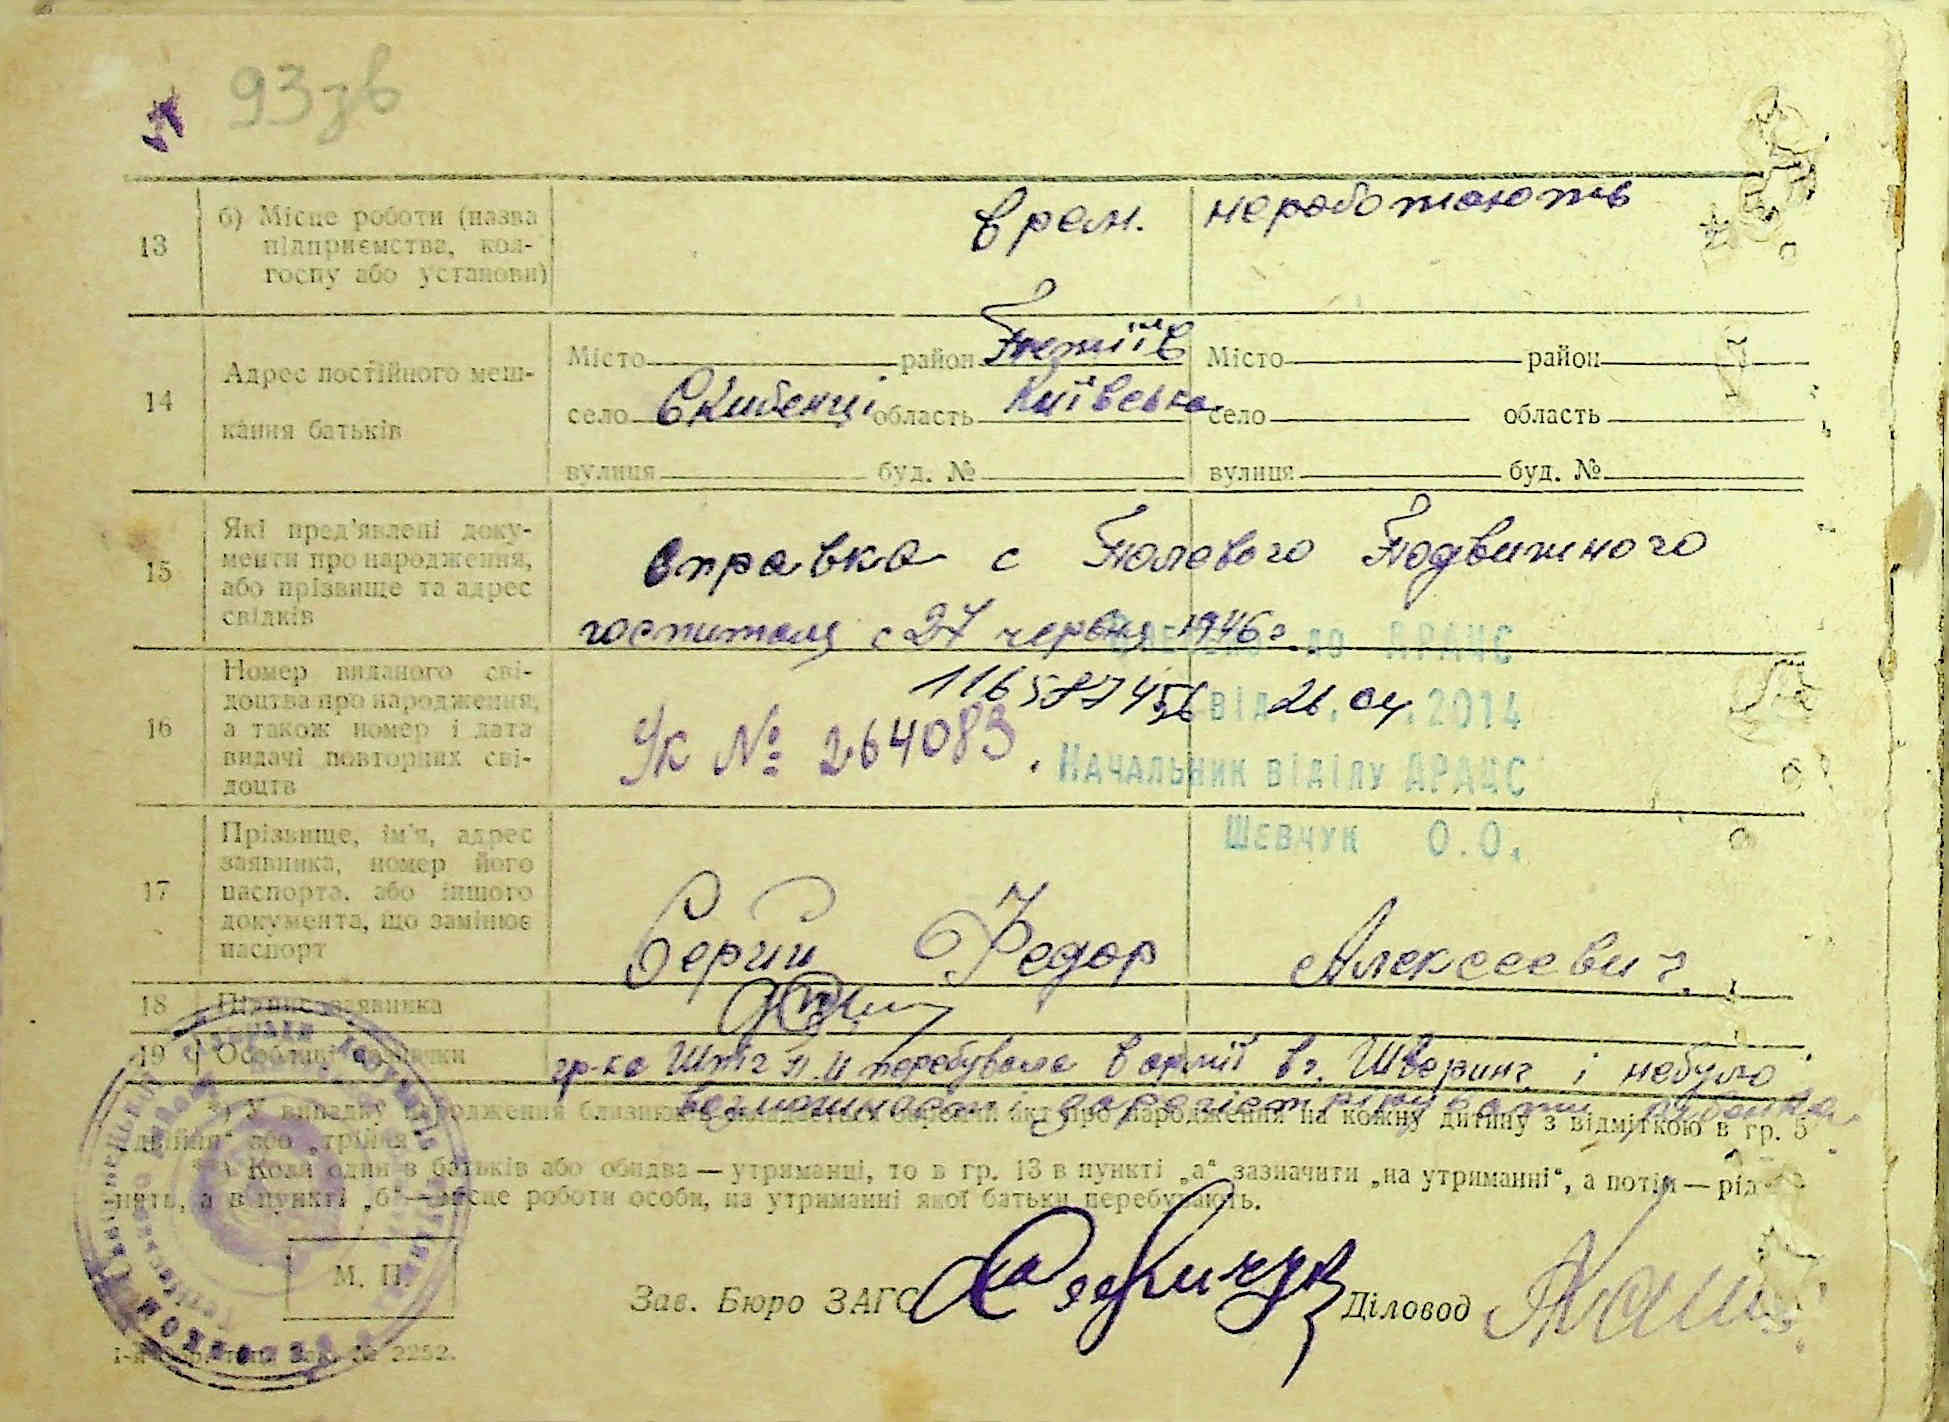 93 зв
13
б) Місце роботи (назва
підприємства, кол-
госпу або установи)
врем. неработають
14
Адрес постійного меш-
кання батьків
Місто район Тетіїв
село Скибенці область Київська
вулиця буд. №
Місто район
село область
вулиця буд. №
15
Які пред'явлені доку-
менти про народження,
або прізвище та адрес
свідків
Справка с Полевого Подвижного
госпиталя с 27 червня 1946 г.
16
Номер виданого сві-
доцтва про народження,
а також номер і дата
видачі повторних сві-
доцтв
до ДРАЦС
від 26.04.2014
УК № 264083.
Начальник відділу ДРАЦС
Шевчук О.О.
17
Прізвище, ім'я, адрес
заявника, номер його
паспорта, або іншого
документа, що замінює
паспорт
Федор Алексеевич.
18
Підпис заявника
19
Особливі
гр-ка перебувала в армії в г. Шверинг і небуло
возможности зарегістрірувати рибенка
*) У випадку народження близнюків складається окремий акт про народження на кожну дитину з відміткою в гр. 5
„двійня“ або „трійня“.
**) Коли один з батьків або обидва — утриманці, то в гр. 13 в пункті „а“ зазначити „на утриманні“, а потім — рід
занять, а в пункті „б“ — місце роботи особи, на утриманні якої батьки перебувають.
М. П.
Зав. Бюро ЗАГС
Діловод
зак. № 2252.